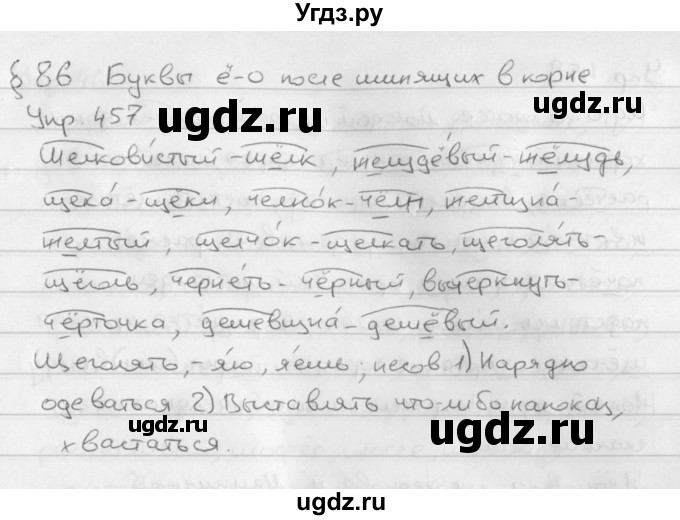 Угдз.ру
§ 86 Буквы ё-о после шипящих в корне
Упр. 457
Шелкови́стый - шёлк, желудёвый - жёлудь,
щека́ - щёки, челно́к - чёлн, желтизна́ -
желтый, щелчо́к - щелкать, щеголя́ть -
щёголь, черне́ть - чёрный, вычеркнуть -
чёрточка, дешевизна́ - дешёвый.
Щеголять, - я́ю, я́ешь; несов 1) Нарядно
одеваться 2) Выставлять что либо напоказ,
хвастаться.
ugdz.ru
ugdz.ru
ugdz.ru
ugdz.ru
ugdz.ru
ugdz.ru
ugdz.ru
ugdz.ru